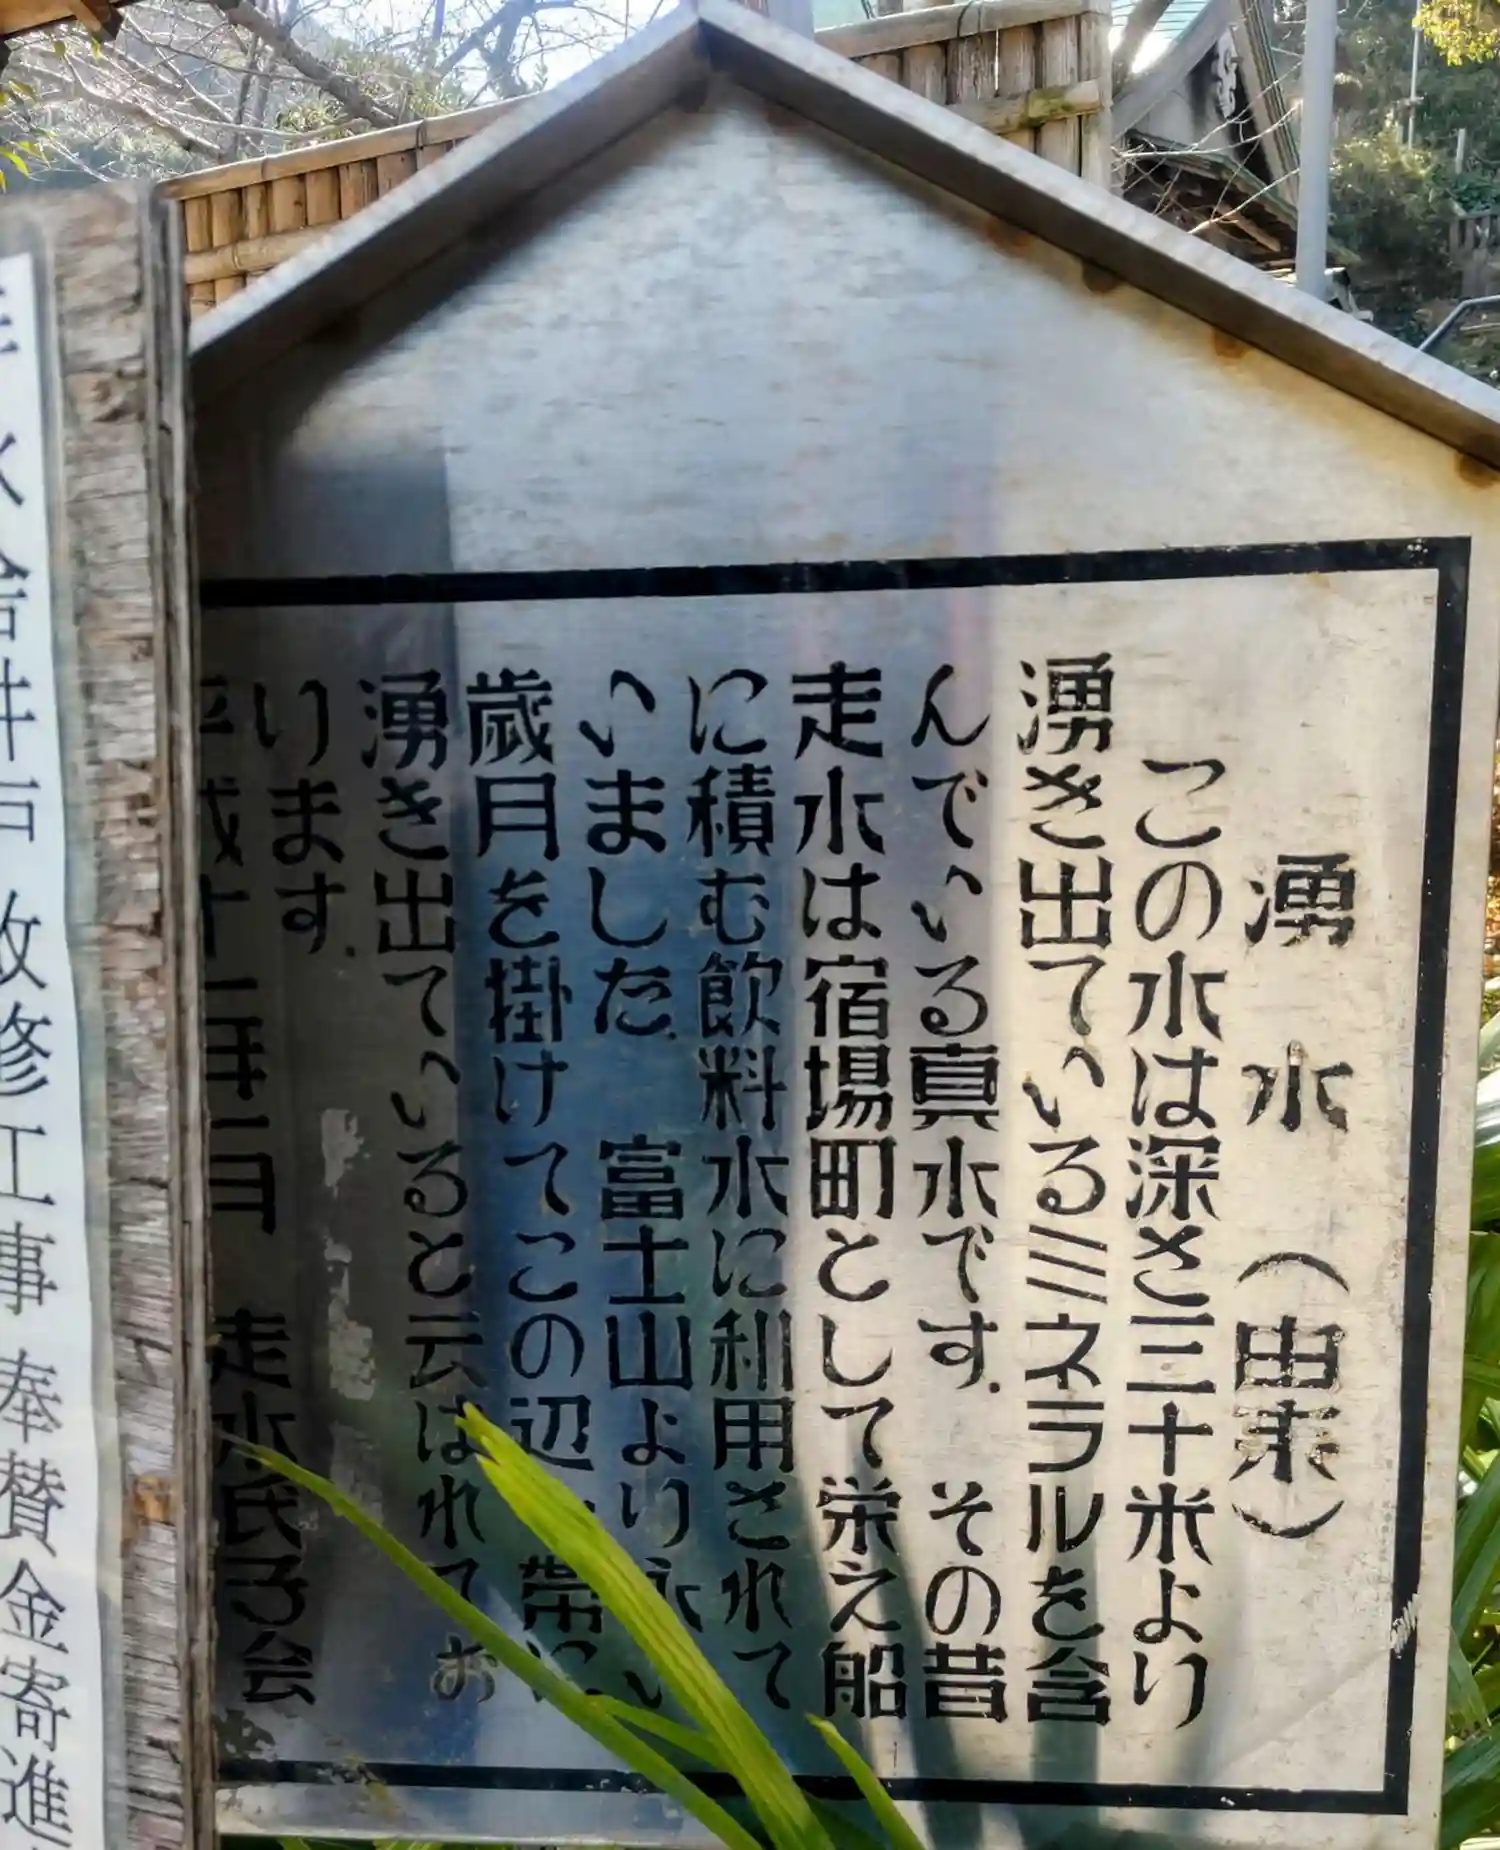 湧水（由来）
この水は深さ三十米より
湧き出ているミネラルを含
んでいる真水です。その昔
走水は宿場町として栄え船
に積む飲料水に利用されて
いました。富士山より永い
歳月を掛けてこの辺一帯に
湧き出ていると云はれてお
ります。
平成十二年二月 走水氏子会
水舎井戸改修工事奉賛金寄進